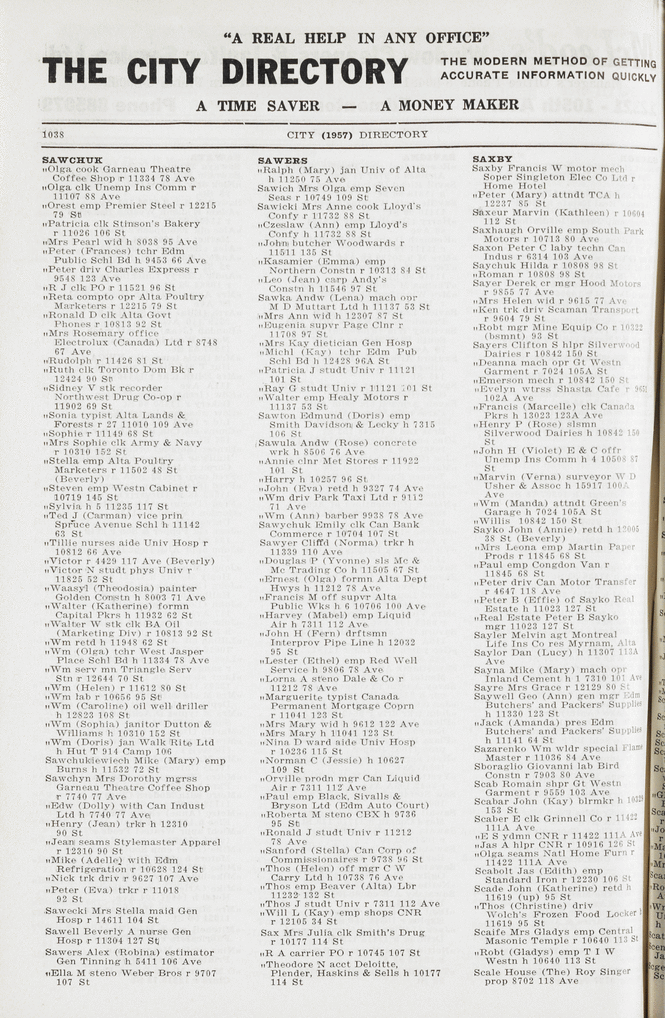 "A REAL HELP IN ANY OFFICE"
THE CITY DIRECTORY
THE MODERN METHOD OF GETTING
ACCURATE INFORMATION QUICKLY
A TIME SAVER — A MONEY MAKER
1038
CITY (1957) DIRECTORY
SAWCHUK
"Olga cook Garneau Theatre
Coffee Shop r 11334 78 Ave
"Olga clk Unemp Ins Comm r
11107 88 Ave
"Orest emp Premier Steel r 12215
79 St
"Patricia clk Stinson's Bakery
r 11026 106 St
"Mrs Pearl wid h 8038 95 Ave
"Peter (Frances) tchr Edm
Public Schl Bd h 9453 66 Ave
"Peter driv Charles Express r
9548 123 Ave
"R J clk PO r 11521 96 St
"Reta compto opr Alta Poultry
Marketers r 12215 79 St
"Ronald D clk Alta Govt
Phones r 10813 92 St
"Mrs Rosemary office
Electrolux (Canada) Ltd r 8748
67 Ave
"Rudolph r 11426 81 St
"Ruth clk Toronto Dom Bk r
12424 90 St
"Sidney V stk recorder
Northwest Drug Co-op r
11902 69 St
"Sonia typist Alta Lands &
Forests r 27 11010 109 Ave
"Sophie r 11149 68 St
"Mrs Sophie clk Army & Navy
r 10310 152 St
"Stella emp Alta Poultry
Marketers r 11502 48 St
(Beverly)
"Steven emp Westn Cabinet r
10719 145 St
"Sylvia h 5 11235 117 St
"Ted J (Carman) vice prin
Spruce Avenue Schl h 11142
63 St
"Tillie nurses aide Univ Hosp r
10812 66 Ave
"Victor r 4429 117 Ave (Beverly)
"Victor N studt phys Univ r
11825 52 St
"Waasyl (Theodosia) painter
Golden Constn h 8003 71 Ave
"Walter (Katherine) formn
Capital Pkrs h 11932 62 St
"Walter W stk clk BA Oil
(Marketing Div) r 10813 92 St
"Wm retd h 11948 62 St
"Wm (Olga) tchr West Jasper
Place Schl Bd h 11334 78 Ave
"Wm serv mn Triangle Serv
Stn r 12644 70 St
"Wm (Helen) r 11612 80 St
"Wm lab r 10656 95 St
"Wm (Caroline) oil well driller
h 12823 108 St
"Wm (Sophia) janitor Dutton &
Williams h 10310 152 St
"Wm (Doris) jan Walk Rite Ltd
h Hut T 914 Camp 106
Sawchukiewiech Mike (Mary) emp
Burns h 11532 72 St
Sawchyn Mrs Dorothy mgrss
Garneau Theatre Coffee Shop
r 7740 77 Ave
"Edw (Dolly) with Can Indust
Ltd h 7740 77 Ave
"Henry (Jean) trkr h 12310
90 St
"Jean seams Stylemaster Apparel
r 12310 90 St
"Mike (Adelle) with Edm
Refrigeration r 10628 124 St
"Nick trk driv r 9627 107 Ave
"Peter (Eva) trkr r 11018
92 St
Sawecki Mrs Stella maid Gen
Hosp r 14611 104 St
Sawell Beverly A nurse Gen
Hosp r 11304 127 St
Sawers Alex (Robina) estimator
Gen Tinning h 5411 106 Ave
"Ella M steno Weber Bros r 9707
107 St
SAWERS
"Ralph (Mary) jan Univ of Alta
h 11250 75 Ave
Sawich Mrs Olga emp Seven
Seas r 10749 109 St
Sawicki Mrs Anne cook Lloyd's
Confy r 11732 88 St
"Czeslaw (Ann) emp Lloyd's
Confy h 11732 88 St
"John butcher Woodwards r
11511 135 St
"Kasamier (Emma) emp
Northern Constn r 10313 84 St
"Leo (Jean) carp Andy's
Constn h 11546 97 St
Sawka Andw (Lena) mach opr
M D Muttart Ltd h 11137 53 St
"Mrs Ann wid h 12307 87 St
"Eugenia supvr Page Clnr r
11708 97 St
"Mrs Kay dietician Gen Hosp
"Michl (Kay) tchr Edm Pub
Schl Bd h 12428 96A St
"Patricia J studt Univ r 11121
101 St
"Ray G studt Univ r 11121 101 St
"Walter emp Healy Motors r
11137 53 St
Sawton Edmund (Doris) emp
Smith Davidson & Lecky h 7315
106 St
Sawula Andw (Rose) concrete
wrk h 8506 76 Ave
"Annie clnr Met Stores r 11922
101 St
"Harry h 10257 96 St
"John (Eva) retd h 9327 74 Ave
"Wm driv Park Taxi Ltd r 9112
71 Ave
"Wm (Ann) barber 9938 78 Ave
Sawychuk Emily clk Can Bank
Commerce r 10704 107 St
Sawyer Cliffd (Norma) trkr h
11339 110 Ave
"Douglas P (Yvonne) sls Mc &
Mc Trading Co h 11505 67 St
"Ernest (Olga) formn Alta Dept
Hwys h 11212 78 Ave
"Francis M off supvr Alta
Public Wks h 6 10706 100 Ave
"Harvey (Mabel) emp Liquid
Air h 7311 112 Ave
"John H (Fern) drftsmn
Interprov Pipe Line h 12032
95 St
"Lester (Ethel) emp Red Well
Service h 9806 78 Ave
"Lorna A steno Dale & Co r
11212 78 Ave
"Marguerite typist Canada
Permanent Mortgage Coprn
r 11041 123 St
"Mrs Mary wid h 9612 122 Ave
"Mrs Mary h 11041 123 St
"Nina D ward aide Univ Hosp
r 10236 115 St
"Norman C (Jessie) h 10627
109 St
"Orville prodn mgr Can Liquid
Air r 7311 112 Ave
"Paul emp Black, Sivalls &
Bryson Ltd (Edm Auto Court)
"Roberta M steno CBX h 9736
95 St
"Ronald J studt Univ r 11212
78 Ave
"Sanford (Stella) Can Corp of
Commissionaires r 9738 96 St
"Thos (Helen) off mgr C W
Carry Ltd h 10738 76 Ave
"Thos emp Beaver (Alta) Lbr
11232 132 St
"Thos J studt Univ r 7311 112 Ave
"Will L (Kay) emp shops CNR
r 12105 34 St
Sax Mrs Julia clk Smith's Drug
r 10177 114 St
"R A carrier PO r 10745 107 St
"Theodore N acct Deloitte,
Plender, Haskins & Sells h 10177
114 St
SAXBY
Saxby Francis W motor mech
Soper Singleton Elec Co Ltd r
Home Hotel
"Peter (Mary) attndt TCA h
12237 85 St
Saxeur Marvin (Kathleen) r 10604
112 St
Saxhaugh Orville emp South Park
Motors r 10713 80 Ave
Saxon Peter C laby techn Can
Indus r 6314 103 Ave
Saychuk Hilda r 10808 98 St
"Roman r 10808 98 St
Sayer Derek cr mgr Hood Motors
r 9855 77 Ave
"Mrs Helen wid r 9615 77 Ave
"Ken trk driv Scaman Transport
r 9604 79 St
"Robt mgr Mine Equip Co r 10322
(bsmnt) 93 St
Sayers Clifton S hlpr Silverwood
Dairies r 10842 150 St
"Deanna mach opr Gt Westn
Garment r 7024 105A St
"Emerson mech r 10842 150 St
"Evelyn wtrss Shasta Cafe r
102A Ave
"Francis (Marcelle) clk Canada
Pkrs h 13023 123A Ave
"Henry P (Rose) slsmn
Silverwood Dairies h 10842 150
St
"John H (Violet) E & C offr
Unemp Ins Comm h 4 10508 87
St
"Marvin (Verna) surveyor W D
Usher & Assoc h 15917 100A
Ave
"Wm (Manda) attndt Green's
Garage h 7024 105A St
"Willis 10842 150 St
Sayko John (Annie) retd h 12005
38 St (Beverly)
"Mrs Leona emp Martin Paper
Prods r 11845 68 St
"Paul emp Congdon Van r
11845 68 St
"Peter driv Can Motor Transfer
r 4647 118 Ave
"Peter B (Effie) of Sayko Real
Estate h 11023 127 St
"Real Estate Peter B Sayko
mgr 11023 127 St
Sayler Melvin agt Montreal
Life Ins Co res Myrnam, Alta
Saylor Dan (Lucy) h 11307 113A
Ave
Sayna Mike (Mary) mach opr
Inland Cement h 1 7310 101 Ave
Sayre Mrs Grace r 12129 80 St
Saywell Geo (Ann) gen mgr Edm
Butchers' and Packers' Supplies
h 11330 123 St
"Jack (Amanda) pres Edm
Butchers' and Packers' Supplies
h 11141 64 St
Sazarenko Wm wldr special Flame
Master r 11036 84 Ave
Sboraglio Giovanni lab Bird
Constn r 7903 80 Ave
Scab Romain shpr Gt Westn
Garment r 9559 103 Ave
Scabar John (Kay) blrmkr h 10329
153 St
Scaber E clk Grinnell Co r 11422
111A Ave
"E S ydmn CNR r 11422 111A Ave
"Jas A hlpr CNR r 10916 126 St
"Olga seams Natl Home Furn r
11422 111A Ave
Scabolt Jas (Edith) emp
Standard Iron r 12230 106 St
Scade John (Katherine) retd h
11619 (up) 95 St
"Thos (Christine) driv
Wolch's Frozen Food Locker h
11619 95 St
Scaife Mrs Gladys emp Central
Masonic Temple r 10640 113 St
"Robt (Gladys) emp T I W
Westn h 10640 113 St
Scale House (The) Roy Singer
prop 8702 118 Ave